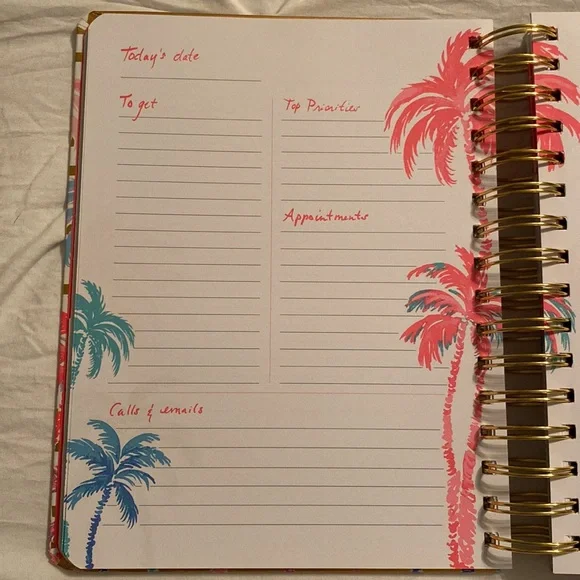 Today's date
To get
Top Priorities
Appointments
Calls & emails